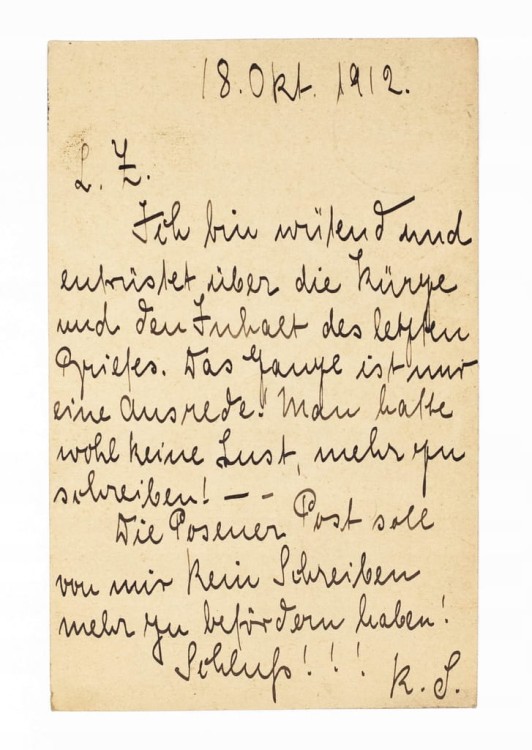 18. Okt. 1912.
L. Z.
Ich bin wütend und
entrüstet über die Kürze
und den Inhalt des letzten
Briefes. Das Ganze ist nur
eine Ausrede! Man hatte
wohl keine Lust, mehr zu
schreiben! — -
Die Posener Post soll
von mir kein Schreiben
mehr zu befördern haben!
Schluß!!!
K. S.